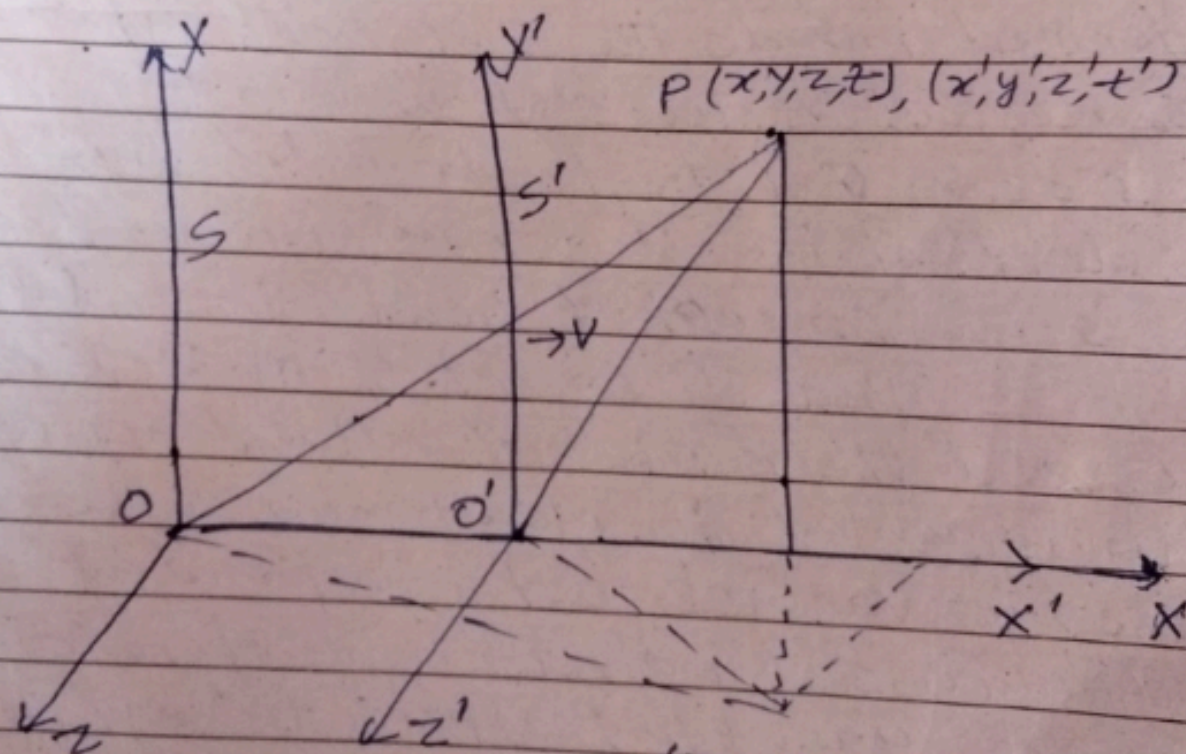 Y Y'
P (x,y,z,t), (x',y',z',t')
S'
S
→V
O O'
X' X
Z Z'